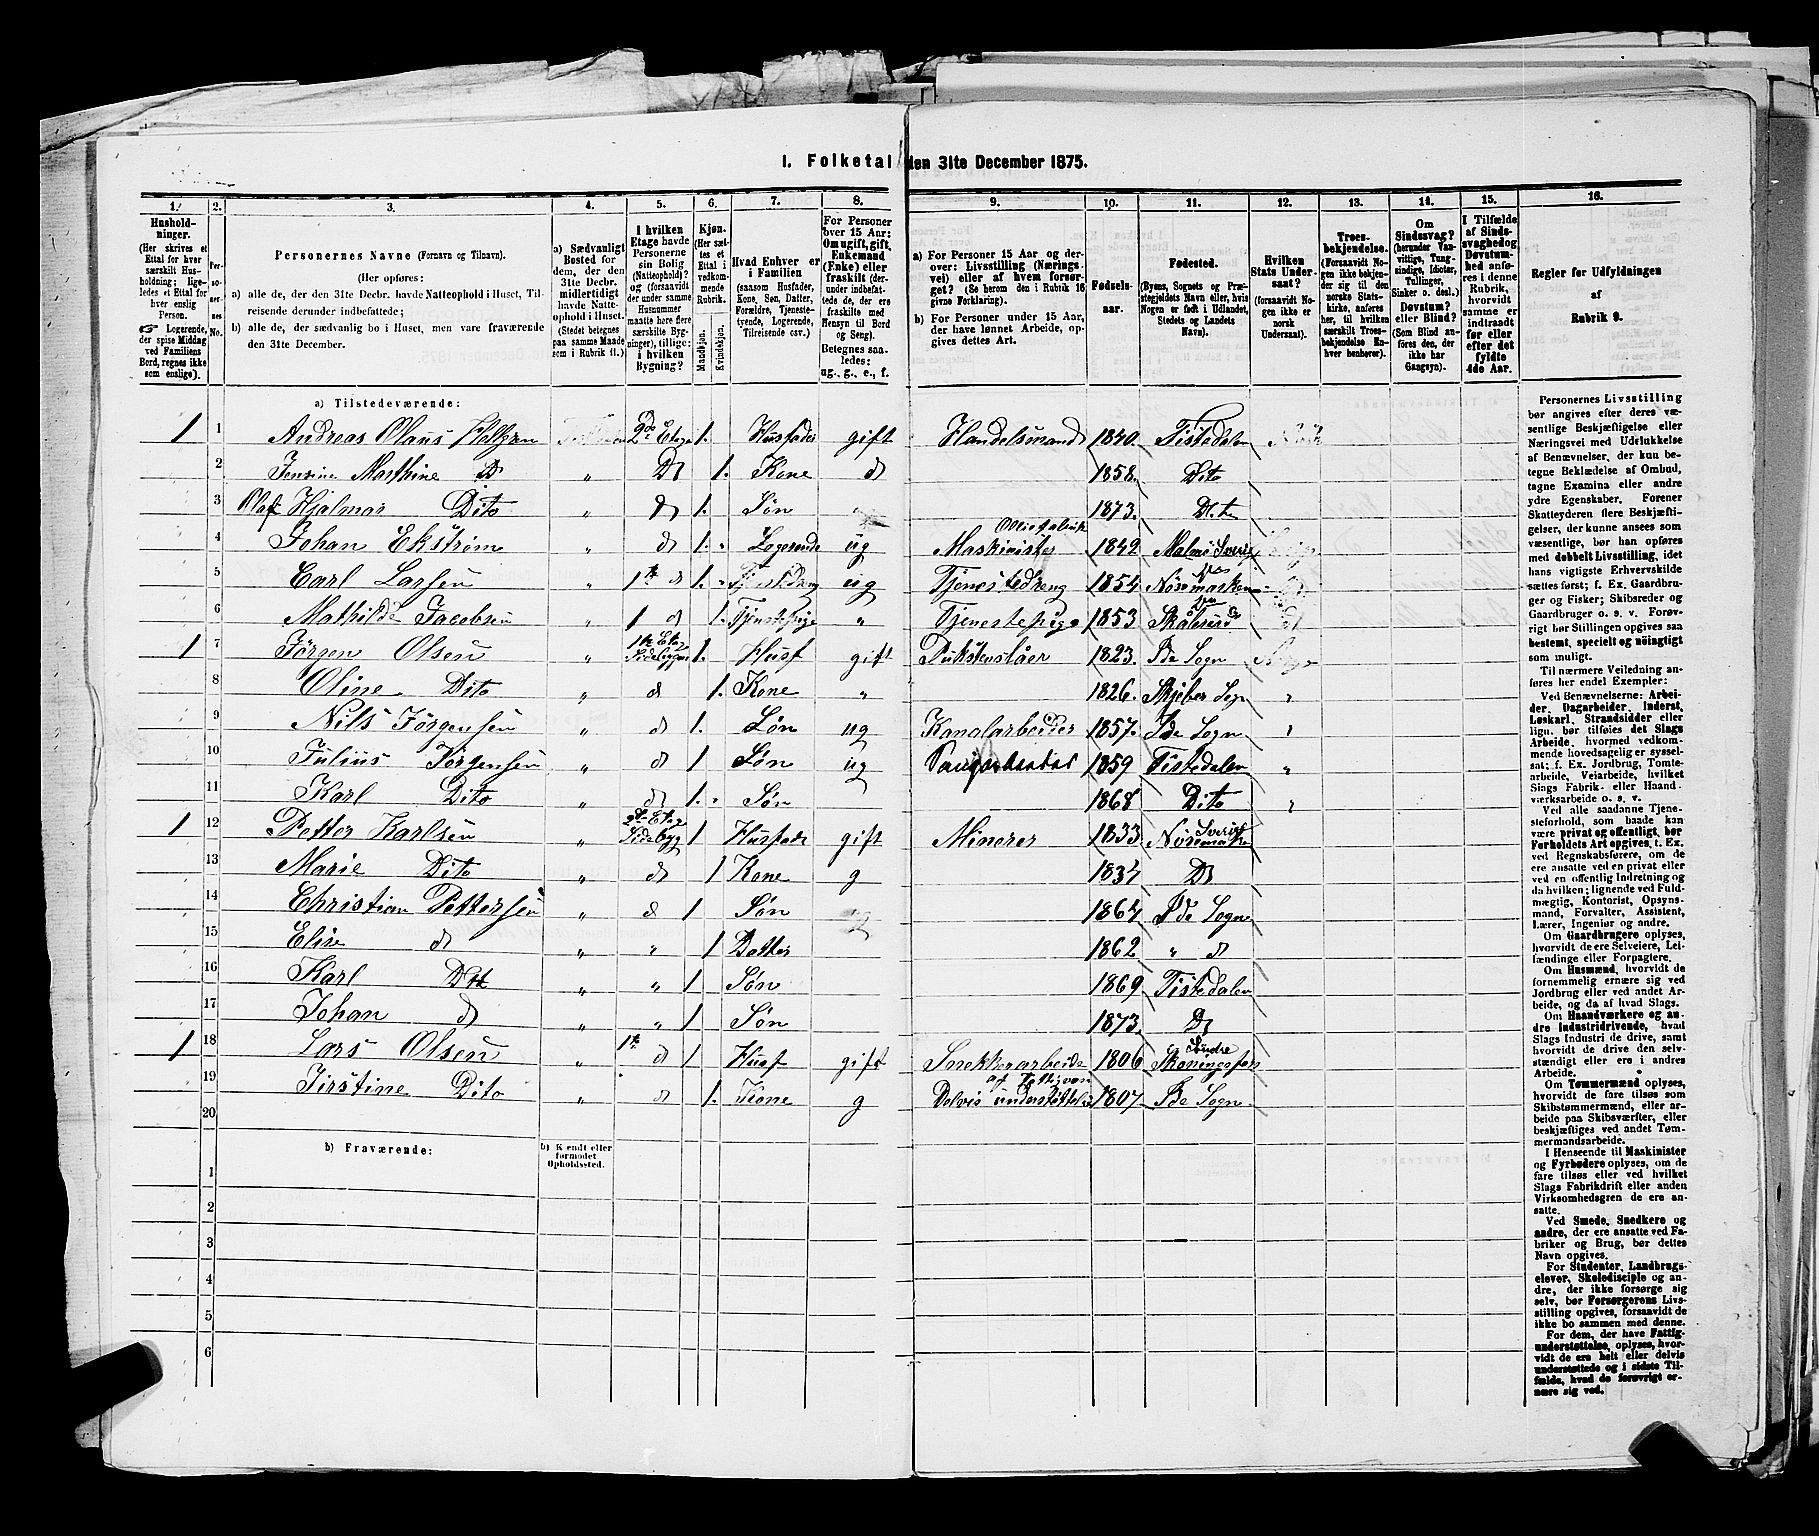 I. Folketal den 31te December 1875.
1. 2. 3. 4. 5. 6. 7. 8. 9. 10. 11. 12. 13. 14. 15. 16.
Husholdninger. (Her skrives et Ettal for hver særskilt Husholdning; ligeledes et Ettal for hver enslig Person. Logerende, der spise Middag ved Familiens Bord, regnes ikke som enslige).
Personernes No.
Personernes Navne (Fornavn og Tilnavn).
(Her opføres:
a) alle de, der den 31te Decbr. havde Natteophold i Huset, Tilreisende derunder indbefattede;
b) alle de, der sædvanlig bo i Huset, men vare fraværende den 31te December.
a) Sædvanligt Bosted for dem, der den 31te Decbr. midlertidigt havde Natteophold i Huset. (Stedet betegnes paa samme Maade som i Rubrik 11.)
I hvilken Etage havde Personerne sin Bolig (Natteophold)? og (forsaavidt der under samme Husnummer maatte høre flere særskilte Bygninger), tillige: i hvilken Bygning?
Kjøn. (Her sættes et Ettal i vedkommende Rubrik. Mandkjøn. Kvindekjøn.
Hvad Enhver er i Familien (saasom Husfader, Kone, Søn, Datter, Forældre, Tjenestetyende, Logerende, Tilreisende osv.)
For Personer over 15 Aar: Om ugift, gift, Enkemand (Enke) eller fraskilt (derunder indbefattede de, der ere fraskilte med Hensyn til Bord og Seng). Betegnes saaledes: ug., g., e., f.
a) For Personer 15 Aar og derover: Livsstilling (Næringsvei) eller af hvem forsørget? (Se herom den i Rubrik 16 givne Forklaring).
b) For Personer under 15 Aar, der have lønnet Arbeide, opgives dettes Art.
Fødselsaar.
Fødested. (Byens, Sognets og Præstegjeldets Navn eller, hvis Nogen er født i Udlandet, Stedets og Landets Navn).
Hvilken Stats Undersaat? (forsaavidt Nogen ikke er norsk Undersaat).
Troesbekjendelse. (Forsaavidt Nogen ikke bekjender sig til den norske Statskirke, anføres her, til hvilken særskilt Troesbekjendelse Enhver henhører).
Om Sindssvag? (herunder Vanvittige, Tungsindige, Idioter, Tullinger, Sinker o. desl.) Døvstum? eller Blind? (Som Blind anføres den, der ikke har Gangsyn).
I Tilfælde af Sindssvaghed og Døvstumhed anføres i denne Rubrik, hvorvidt samme er indtraadt før eller efter det fyldte 4de Aar.
Regler for Udfyldningen af Rubrik 9.
a) Tilstedeværende:
1 1 Andreas Olaus 2de Etage 1. Husfader gift Handelsmand 1840. Tistedalen
2 Marthine D " D 1. Kone d 1858. Dito
3 Olaf Hjalmar Dito " D 1. Søn " 1873. Dito
4 Johan Ekstrøm " d 1. Logerende ug Maskinister 1849 Malmö Sverig
5 Carl Larsen " 1te d 1. Tjenstdreng ug Tjenestedreng 1854 Nössemarken
6 Mathilde Jacobsen " 1 d 1. Tjenstepige " Tjenestepige 1853
1 7 Jørgen Olsen " 1te Etag Sidebygn 1. Husf gift 1823. Ide Sogn
8 Oline Dito " d 1. Kone " 1826. Skjeber Sogn "
9 Nils Jørgensen " d 1. Søn ug Kanalarbeider 1857. Ide Sogn "
10 Julius Jørgensen " d 1 Søn ug 1859 Tistedalen "
11 Karl Dito " d 1. Søn 1868 Dito "
1 12 Petter Karlsen " 2de Etag Sidebyg 1 Husfade gift Minerer 1833 Sverig
13 Marie Dito " d 1 Kone g 1834 D
14 Christian Pettersen " d 1 Søn ug 1864 Ide Sogn
15 Elise d " " 1 Datter 1862 " d
16 Karl Dit " " 1 Søn 1869 Tistedalen
17 Johan d " " 1 Søn 1873 D
1 18 Lars Olsen " 1te d 1 Husf gift Snekkerarbeide 1806 Søndre
19 Dito " d 1. Kone g Delvis understøttelse af Fattigvæs 1807 Ide Sogn
20
b) Fraværende: b) Kjendt eller formodet Opholdssted.
1
2
3
4
5
6
Personernes Livsstilling bør angives efter deres væsentlige Beskjæftigelse eller Næringsvei med Udelukkelse af Benævnelser, der kun betegne Beklædelse af Ombud, tagne Examina eller andre ydre Egenskaber. Forener Skatteyderen flere Beskjæftigelser, der kunne ansees som væsentlige, bør han opføres med dobbelt Livsstilling, idet hans vigtigste Erhvervskilde sættes først; f. Ex. Gaardbruger og Fisker; Skibsreder og Gaardbruger o. s. v. Forøvrigt bør Stillingen opgives saa bestemt, specielt og nöiagtigt som muligt.
Til nærmere Veiledning anføres her endel Exempler:
Ved Benævnelserne: Arbeider, Dagarbeider, Inderst, Løskarl, Strandsidder eller lign. bør tilføies det Slags Arbeide, hvormed vedkommende hovedsagelig er sysselsat; f. Ex. Jordbrug, Tomtearbeide, Veiarbeide, hvilket Slags Fabrik- eller Haandværksarbeide o. s. v.
Ved alle saadanne Tjenesteforhold, som baade kan være privat og offentligt, bør Forholdets Art opgives, t. Ex. ved Regnskabsførere, om de ere ansatte ved en privat eller ved en offentlig Indretning og da hvilken; lignende ved Fuldmægtig, Kontorist, Opsynsmand, Forvalter, Assistent, Lærer, Ingeniør og andre.
Om Gaardbrugere oplyses, hvorvidt de ere Selveiere, Leilændinge eller Forpagtere.
Om Husmænd, hvorvidt de fornemmelig ernære sig ved Jordbrug eller ved andet Arbeide, og da af hvad Slags.
Om Haandværkere og andre Industridrivende, hvad Slags Industri de drive, samt hvorvidt de drive den selvstændigt eller ere i andres Arbeide.
Om Tømmermænd oplyses, hvorvidt de fare tilsøs som Skibstømmermænd, eller arbeide paa Skibsværfter, eller beskjæftiges ved andet Tømmermandsarbeide.
I Henseende til Maskinister og Fyrbødere oplyses, om de fare tilsøs eller ved hvilket Slags Fabrikdrift eller anden Virksomhedsgren de ere ansatte.
Ved Smede, Snedkere og andre, der ere ansatte ved Fabriker og Brug, bør dettes Navn opgives.
For Studenter, Landbrugselever, Skoledisciple og andre, der ikke forsørge sig selv, bør Forsørgerens Livsstilling opgives, forsaavidt de ikke bo sammen med denne.
For dem, der have Fattigunderstøttelse, oplyses, hvorvidt de ere helt eller delvis understøttede og i sidste Tilfælde, hvad de forøvrigt ernære sig ved.